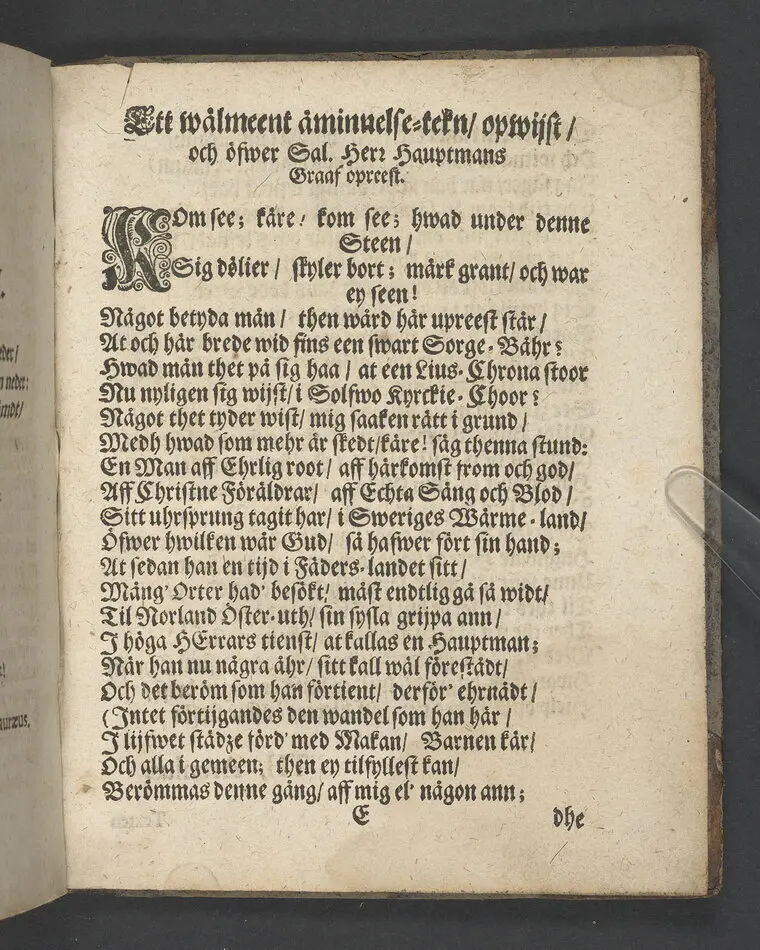 Ett wälmeent åminnelse-tekn/ opwijst/
och öfwer Sal. Herr Hauptmans
Graaf opreest.
KOm see; käre/ kom see; hwad under denne
Steen/
Sig dölier/ skyler bort; märk grant/ och war
ey seen!
Något betyda mån/ then wård här upreest står/
At och här brede wid fins een swart Sorge-Båhr?
Hwad mån thet på sig haa/ at een Lius-Chrona stoor
Nu nyligen sig wijst/ i Solfwo Kyrckie-Choor?
Något thet tyder wist/ mig saaken rätt i grund/
Medh hwad som mehr är skedt/käre! säg thenna stund:
En Man aff Ehrlig root/ aff härkomst from och god/
Aff Christne Föräldrar/ aff Echta Säng och Blod/
Sitt uhrsprung tagit har/ i Sweriges Wärme-land/
Öfwer hwilken wår Gud/ så hafwer fört sin hand;
At sedan han en tijd i Fäders-landet sitt/
Mång' Orter had' besökt/ måst endtlig gå så widt/
Til Norland Öster-uth/ sin sysla grijpa ann/
J höga HErrars tienst/ at kallas en Hauptman;
När han nu några åhr/ sitt kall wäl förestådt/
Och det beröm som han förtient/ derför' ehrnådt/
(Jntet förtijgandes den wandel som han här/
J lijfwet städze förd' med Makan/ Barnen kär/
Och alla i gemeen; then ey tilfyllest kan/
Berömmas denne gång/ aff mig el' någon ann;
E dhe
eder/
n neder:
mdt/
uræus.